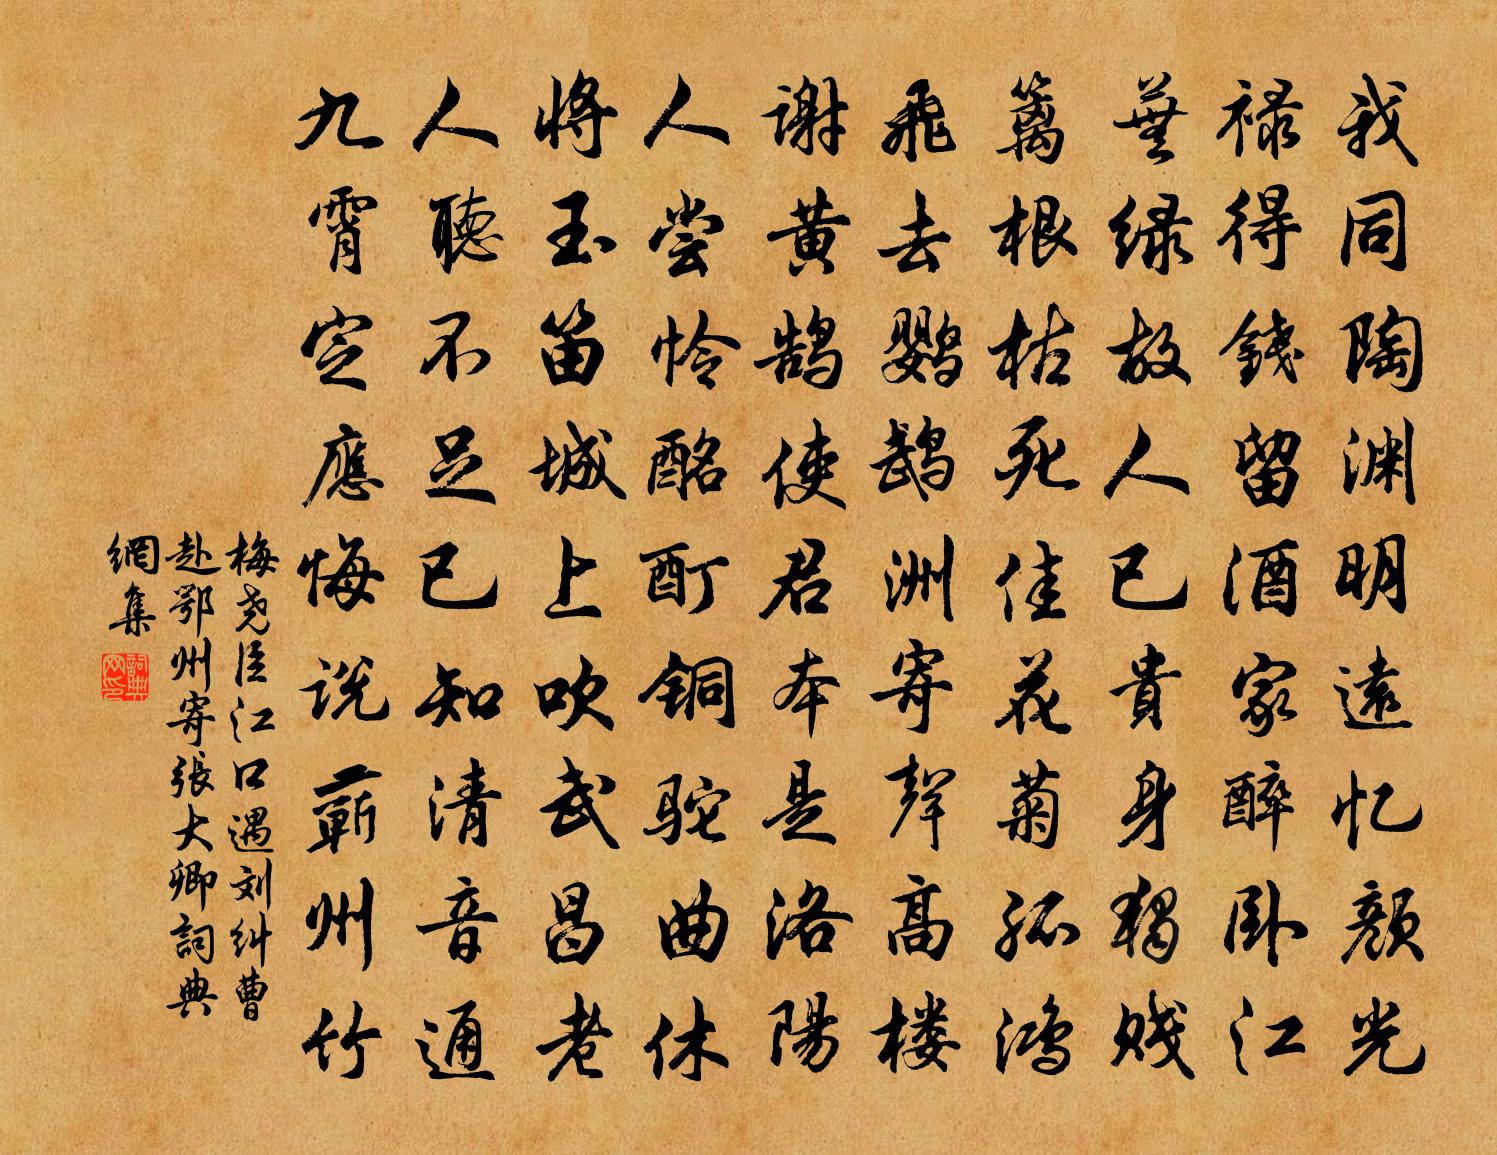 我同陶渊明遠忆顏光
禄得錢留酒家醉卧江
蕪绿故人已貴身獨賤
篱根枯死佳花菊孤鸿
飛去鸚鵡洲寄聲高楼
谢黄鹄使君本是洛陽
人尝怜酩酊铜驼曲休
将玉笛城上吹武昌老
人聽不足已知清音通
九霄定應悔说蕲州竹
梅尧臣江口遇刘纠曹
赴鄂州寄張大卿詞典
網集
詞典
网印